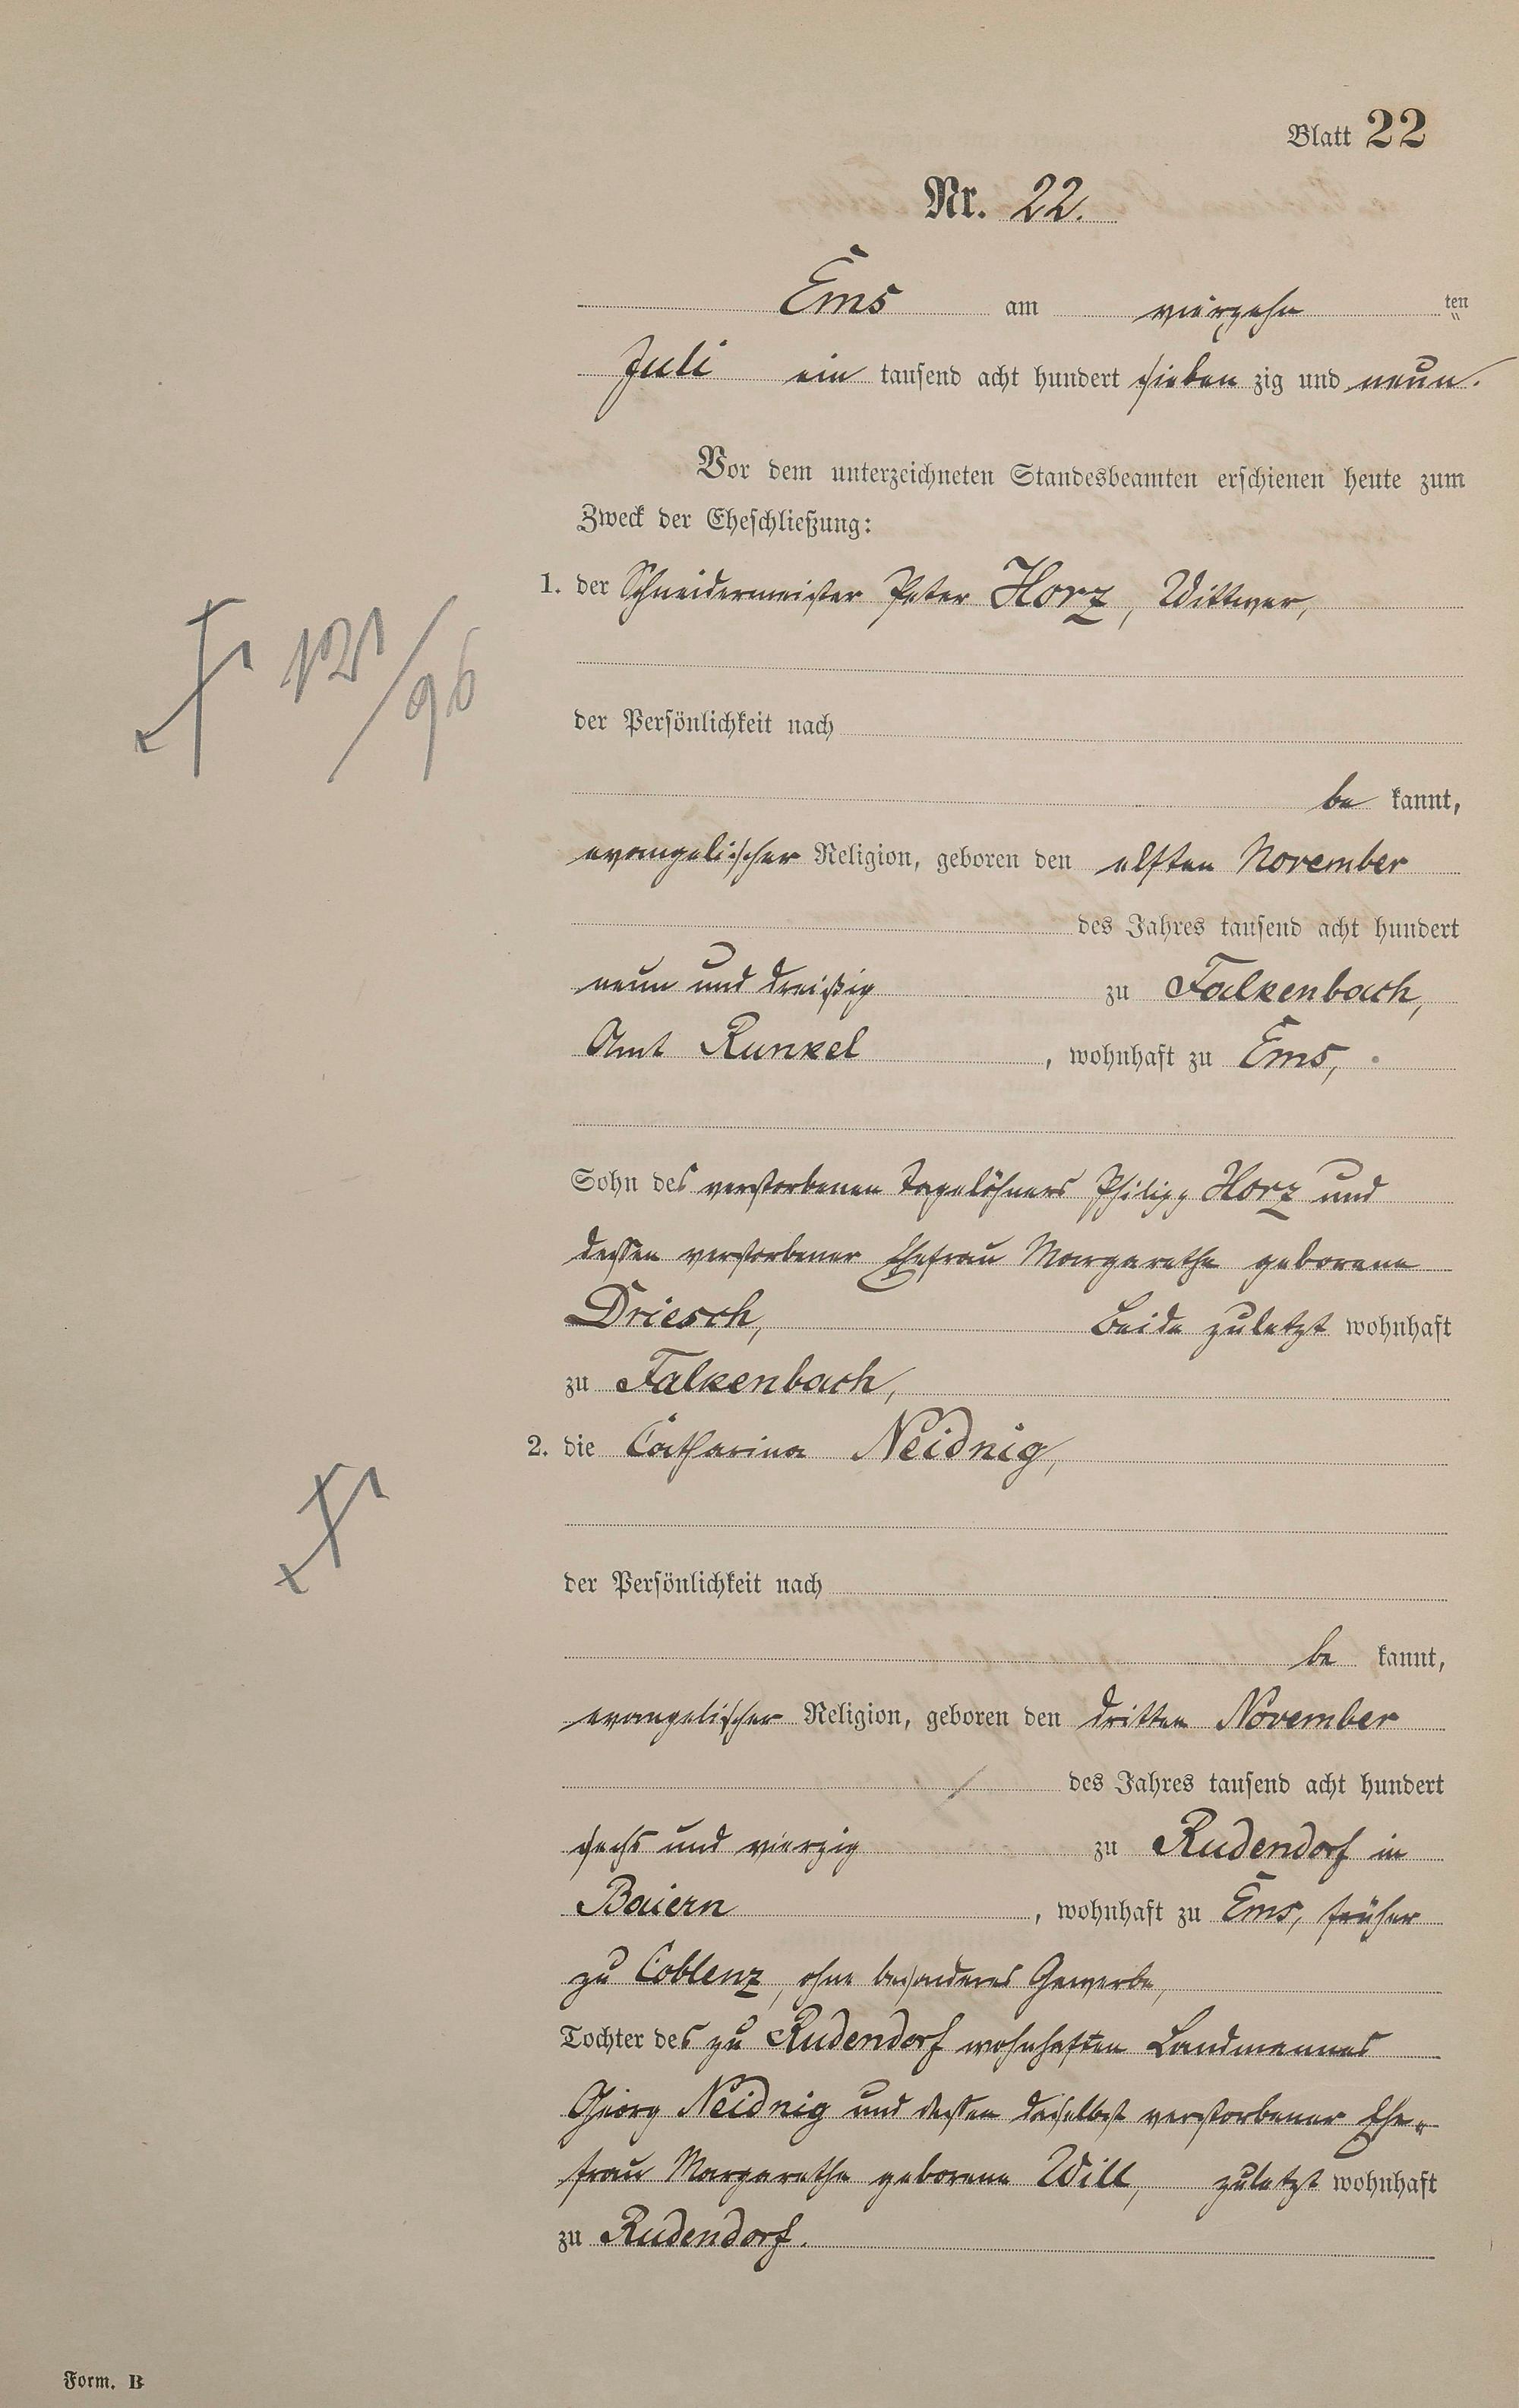 Blatt 22
Nr. 22.
Ems am vierzehn ten
Juli ein tausend acht hundert sieben zig und neun.
Vor dem unterzeichneten Standesbeamten erschienen heute zum
Zweck der Eheschließung:
1. der Schneidermeister Peter Horz, Wittwer,
der Persönlichkeit nach
be kannt,
evangelischer Religion, geboren den elften November
des Jahres tausend acht hundert
neun und dreißig zu Falkenbach,
Amt Runkel, wohnhaft zu Ems,
Sohn des verstorbenen Tagelöhners Philipp Horz und
dessen verstorbener Ehefrau Margarethe geborene
Driesch, Beide zuletzt wohnhaft
zu Falkenbach,
2. die Catharina Neidnig,
der Persönlichkeit nach
be kannt,
evangelischer Religion, geboren den dritten November
des Jahres tausend acht hundert
sechs und vierzig zu Rudendorf in
Baiern, wohnhaft zu Ems, früher
zu Coblenz, ohne besonderes Gewerbe,
Tochter des zu Rudendorf wohnhaften Landmannes
Georg Neidnig und dessen daselbst verstorbener Ehe-
frau Margarethe geborene Will, zuletzt wohnhaft
zu Rudendorf.
Form. B